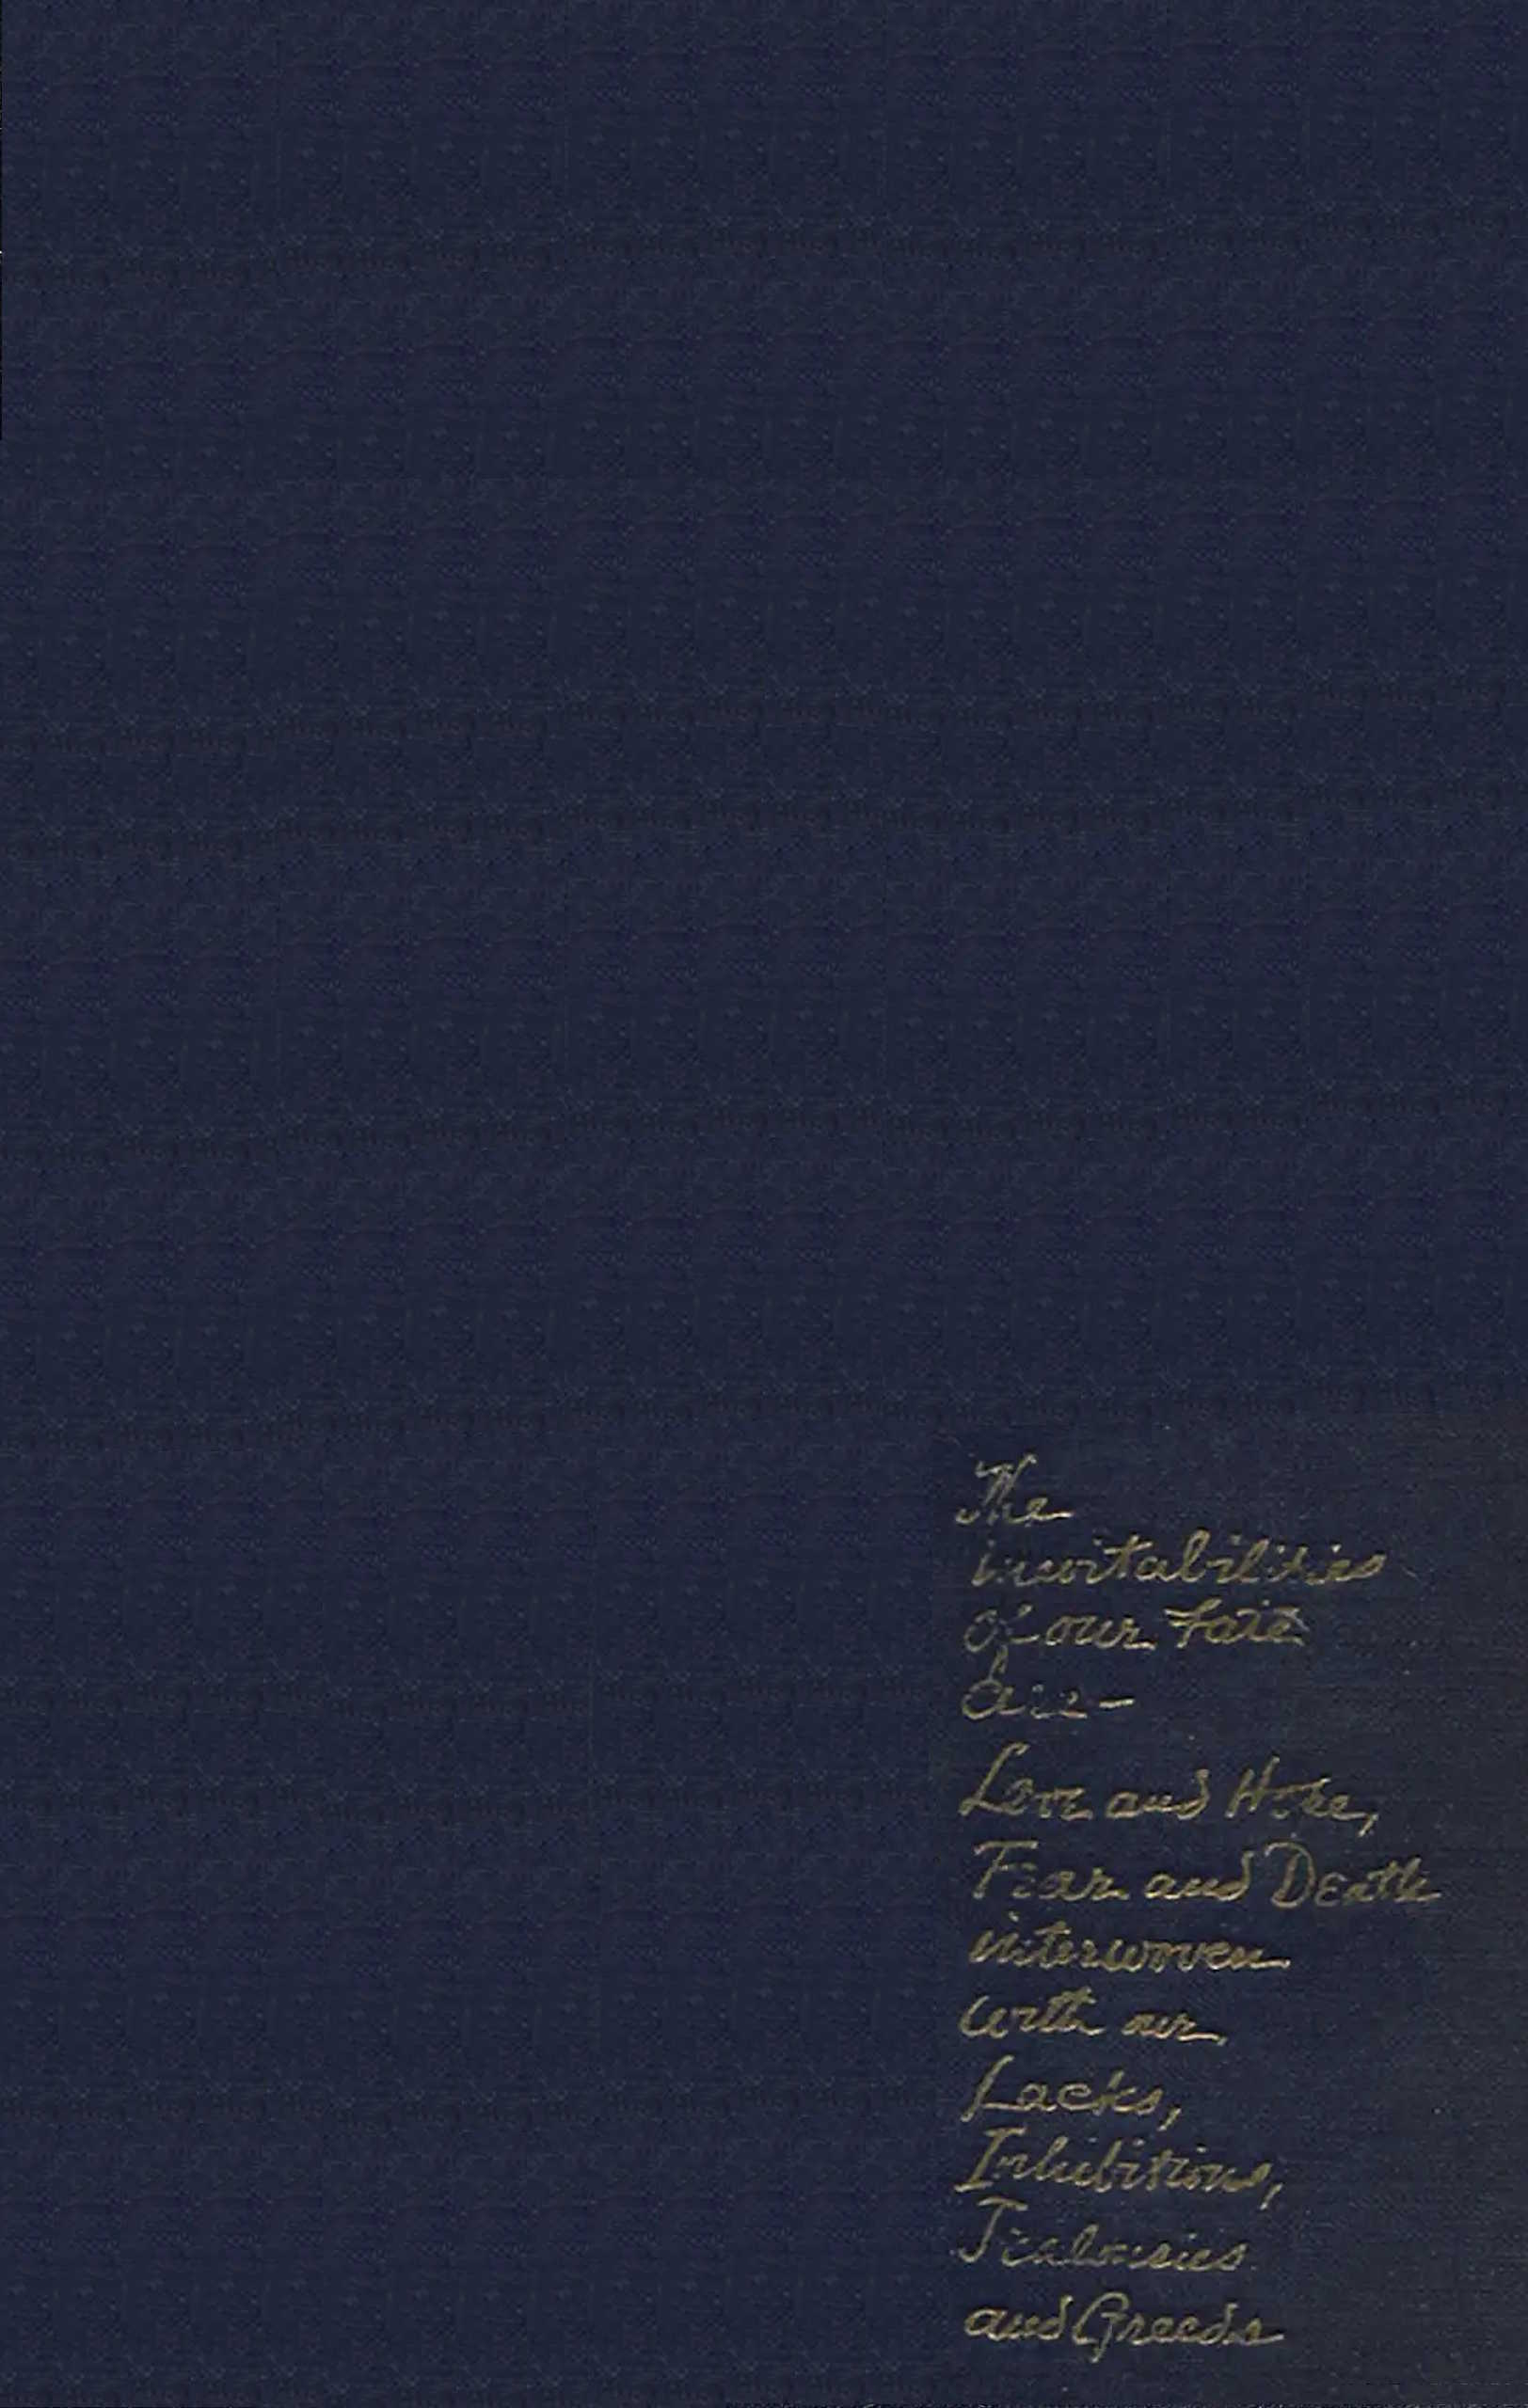 The
inevitabilities
of our Fate
are—
Love and Hope,
Fear and Death
interwoven
with our
Lacks,
Inhibitions,
Jealousies
and Greeds